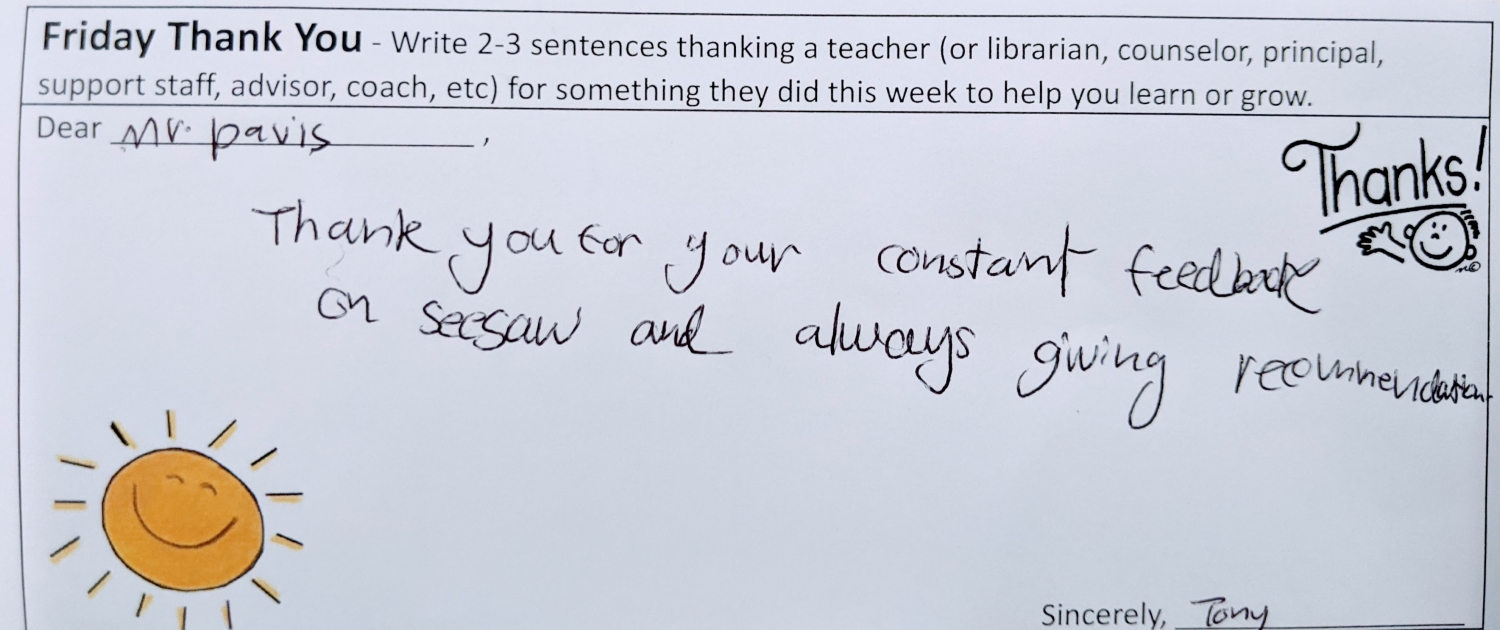 Friday Thank You - Write 2-3 sentences thanking a teacher (or librarian, counselor, principal,
support staff, advisor, coach, etc) for something they did this week to help you learn or grow.
Dear Mr. Davis,
Thanks!
Thank you for your constant feedback
on seesaw and always giving recommendation
Sincerely, Tony